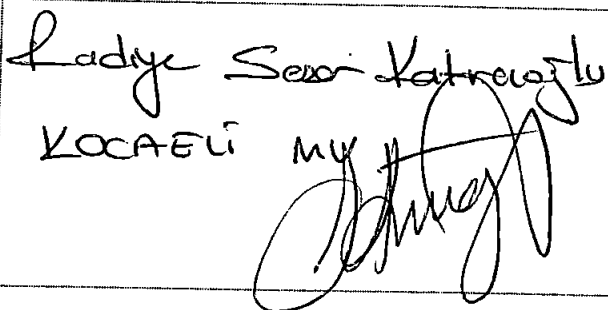 Radiye Sezer Katırcıoğlu
KOCAELİ MV